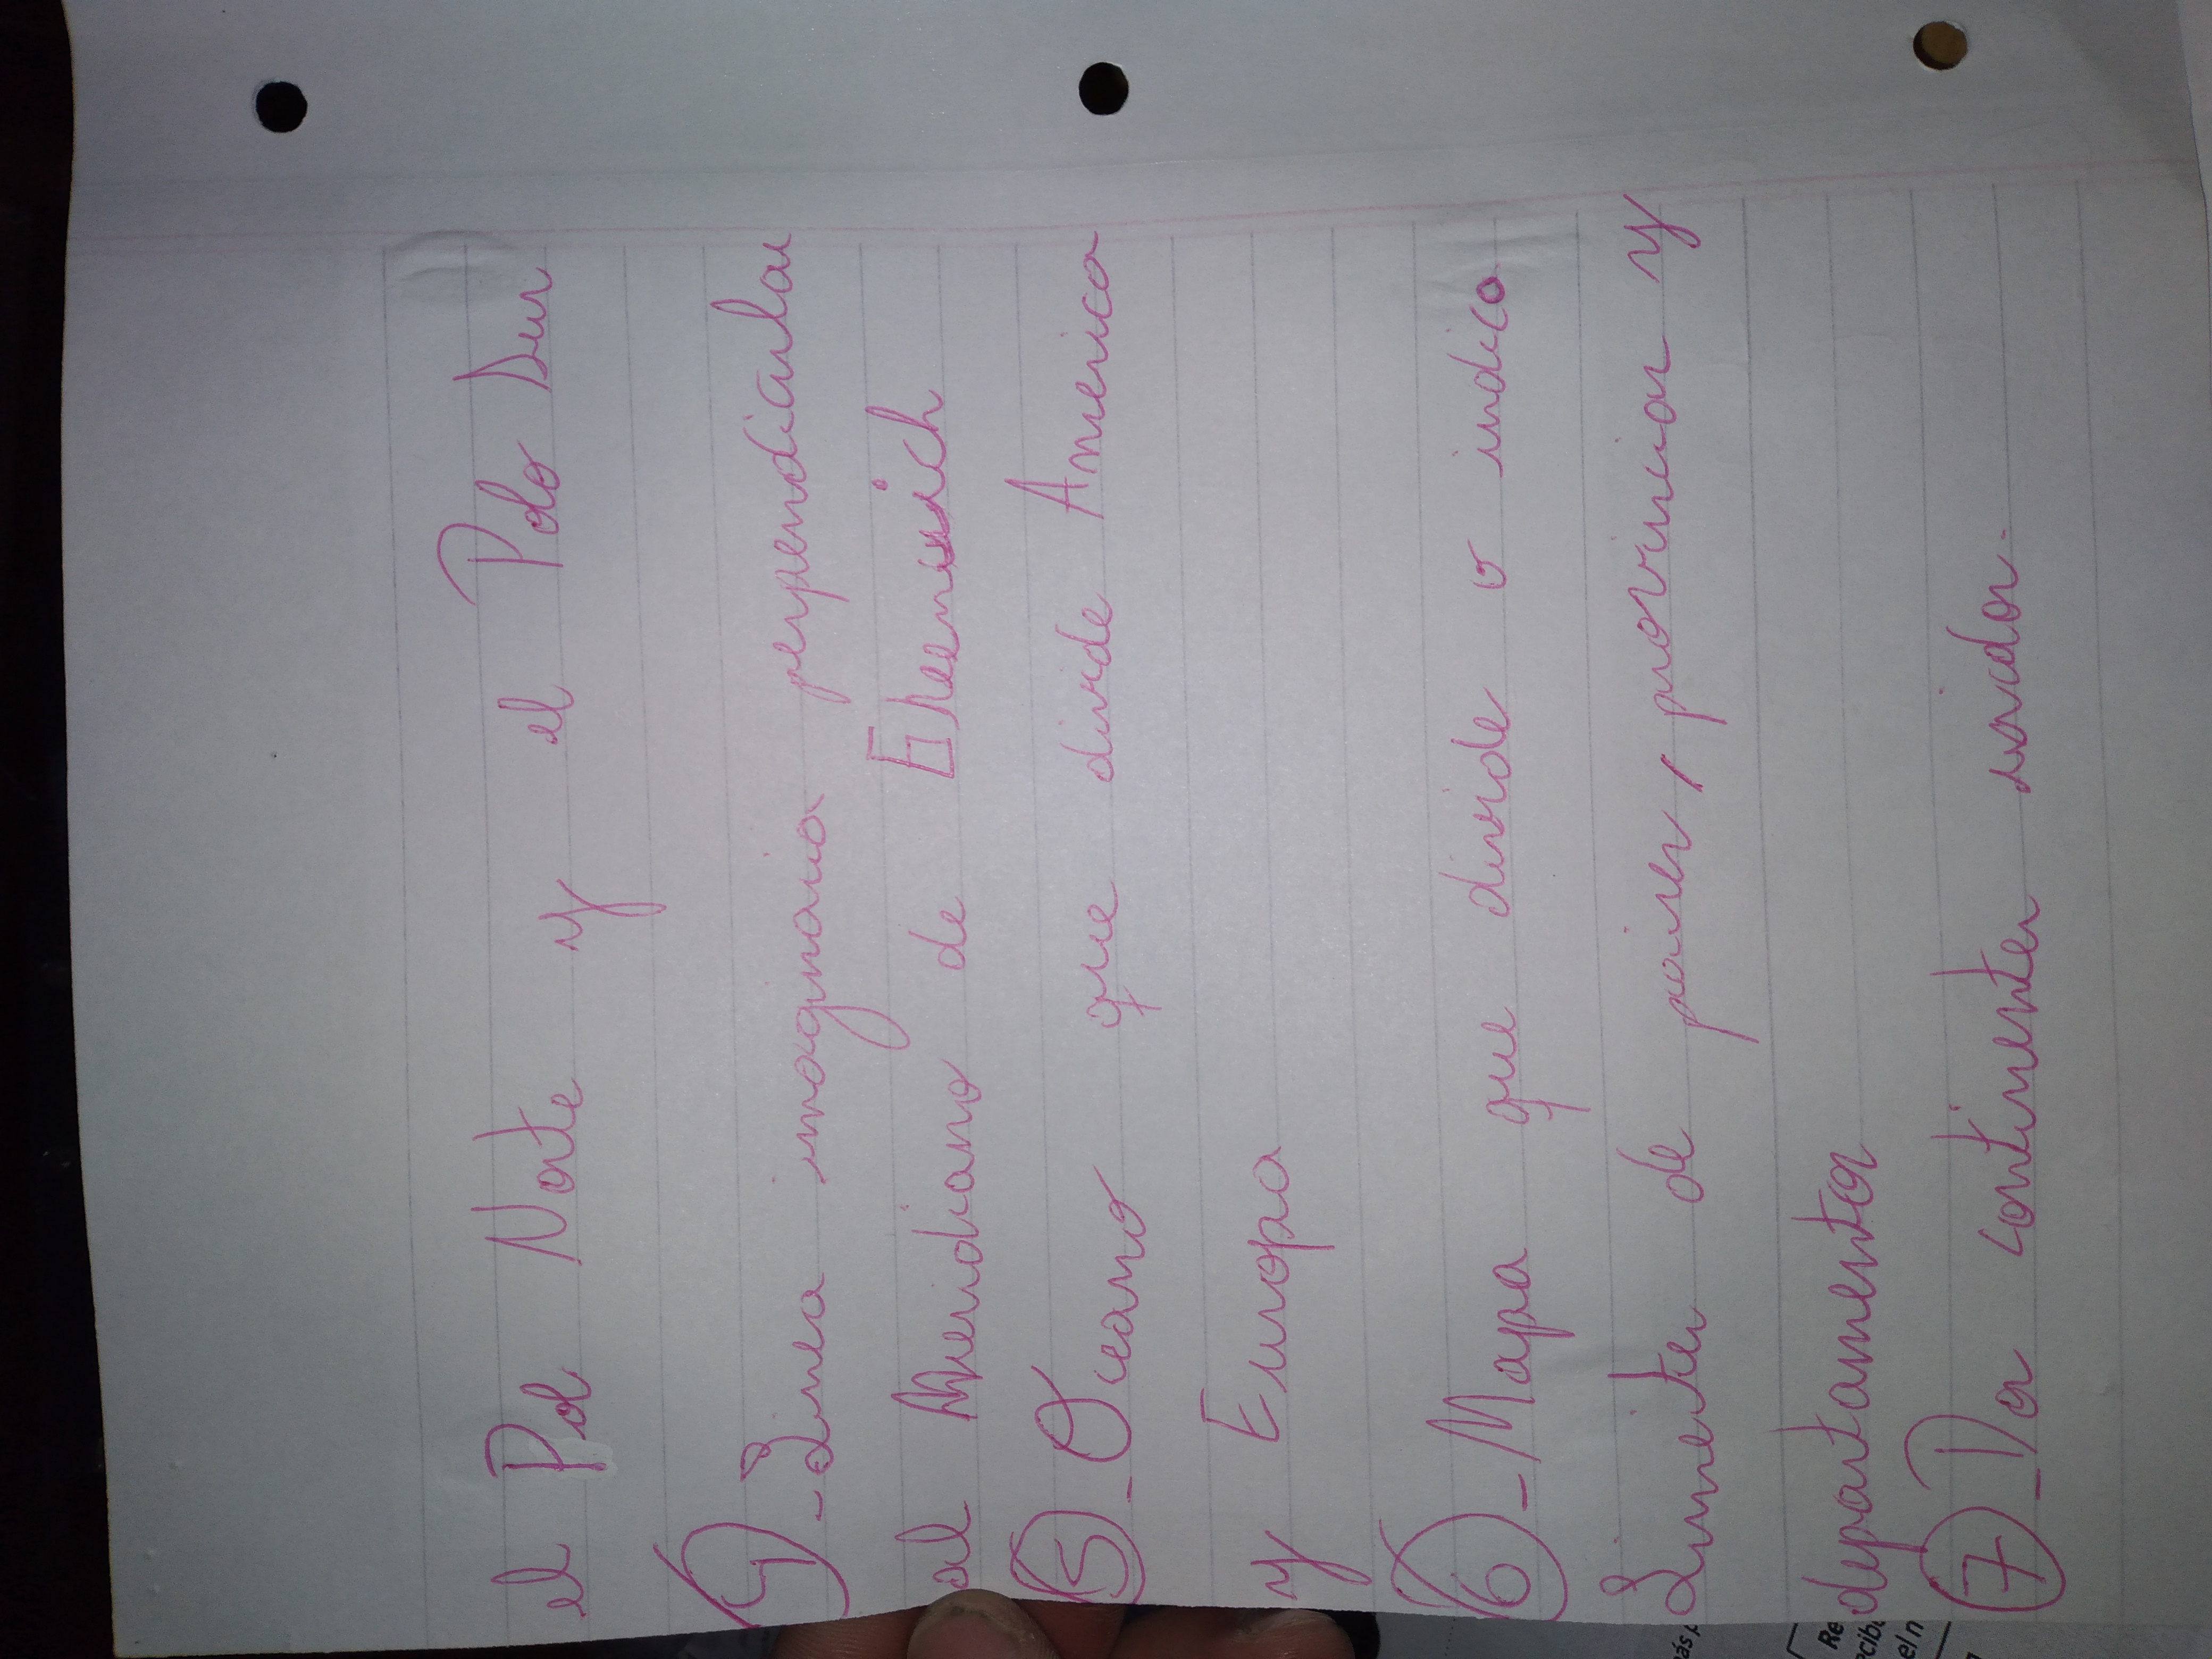 el Pol Norte y el Polo Sur
4_ Linea imaginaria perpendicular
al Meridiano de Greenwich
5_ Oceano que divide America
y Europa
6_ Mapa que divide o indica
Limites de paises, provincias y
departamentos
7_ Dos continentes unidos.